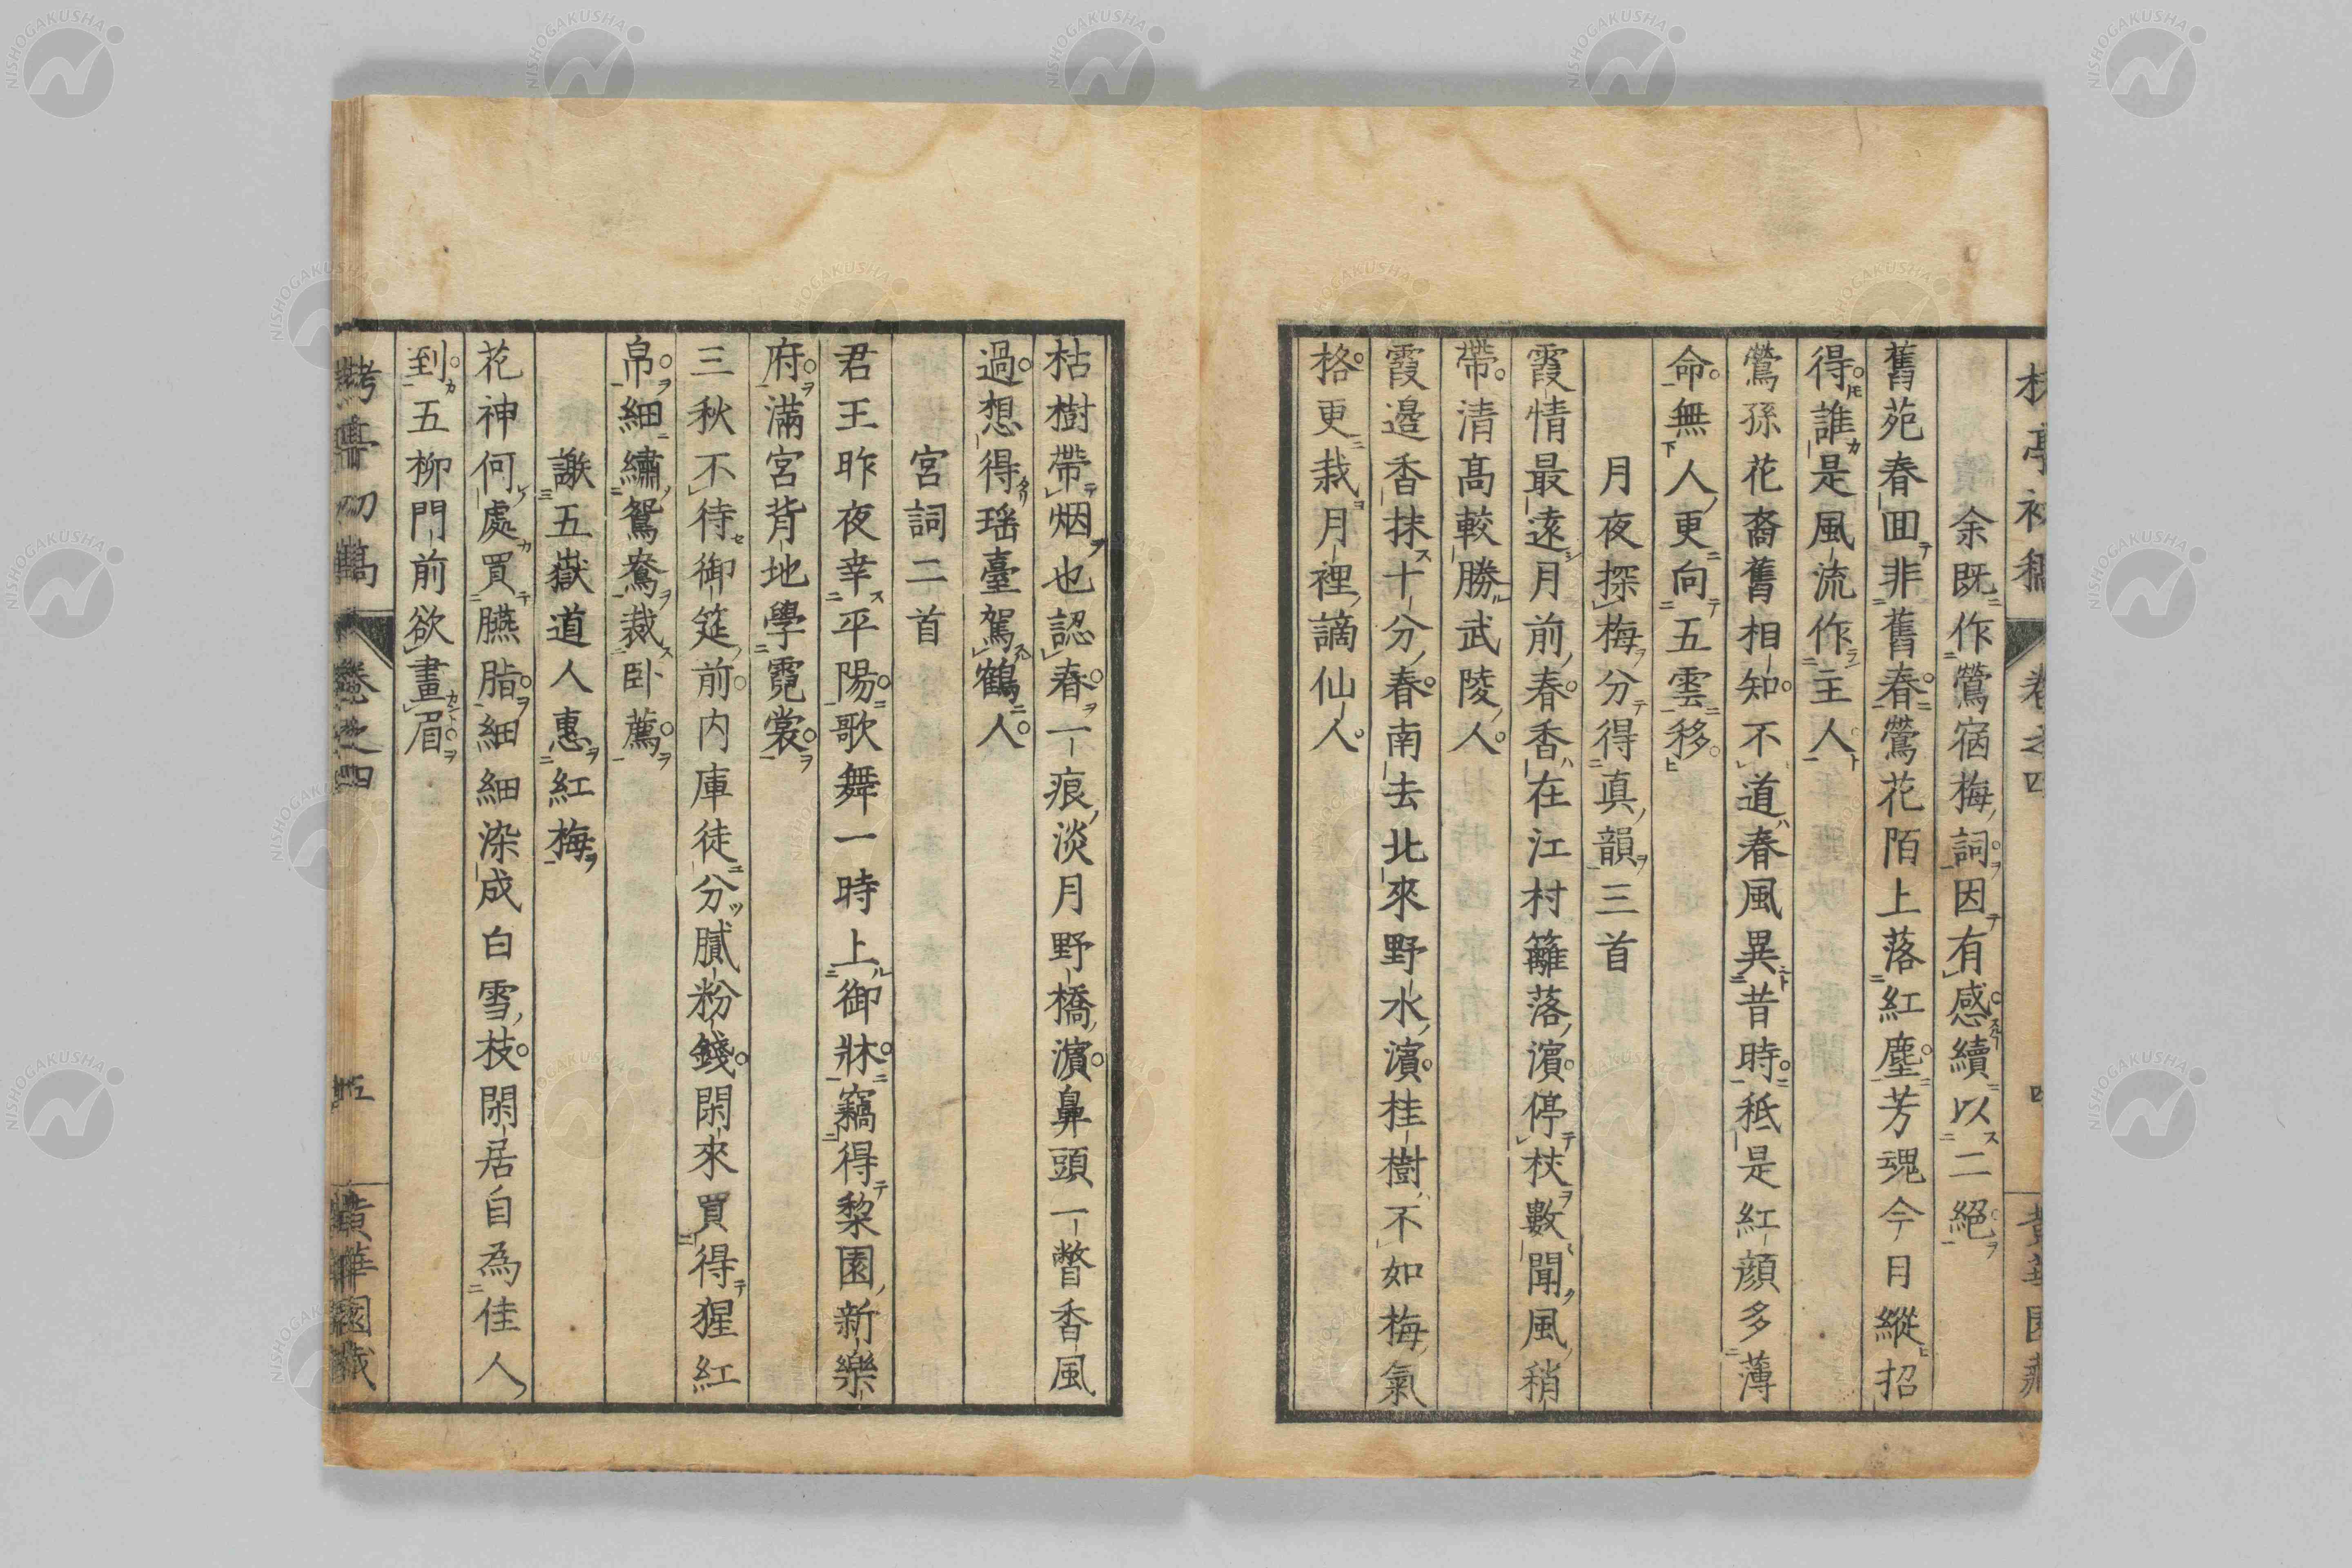 余既作鶯宿梅詞因有感續以二絕
舊苑春回非舊春鶯花陌上落紅塵芳魂今月縱招
得誰是風流作主人
鶯孫花裔舊相知不道春風異昔時秪是紅顔多薄
命無人更向五雲移
月夜探梅分得真韻三首
霞情最遠月前春香在江村籬落濱停杖數聞風稍
帶清高較勝武陵人
霞邉香抹十分春南去北來野水濱桂樹不如梅氣
格更栽月裡謫仙人
枯樹帶烟也認春一痕淡月野橋濱鼻頭一瞥香風
過想得瑶臺駕鶴人
宮詞二首
君王昨夜幸平陽歌舞一時上御牀竊得黎園新樂
府滿宮背地學霓裳
三秋不待御筵前内庫徒分膩粉錢閑來買得猩紅
帛細繡鴛鴦裁卧薦
謝五嶽道人惠紅梅
花神何處買臙脂細細染成白雪枝閑居自為佳人
到五柳門前欲畫眉
卷之四
五
黄華園藏
NISHOGAKUSHA